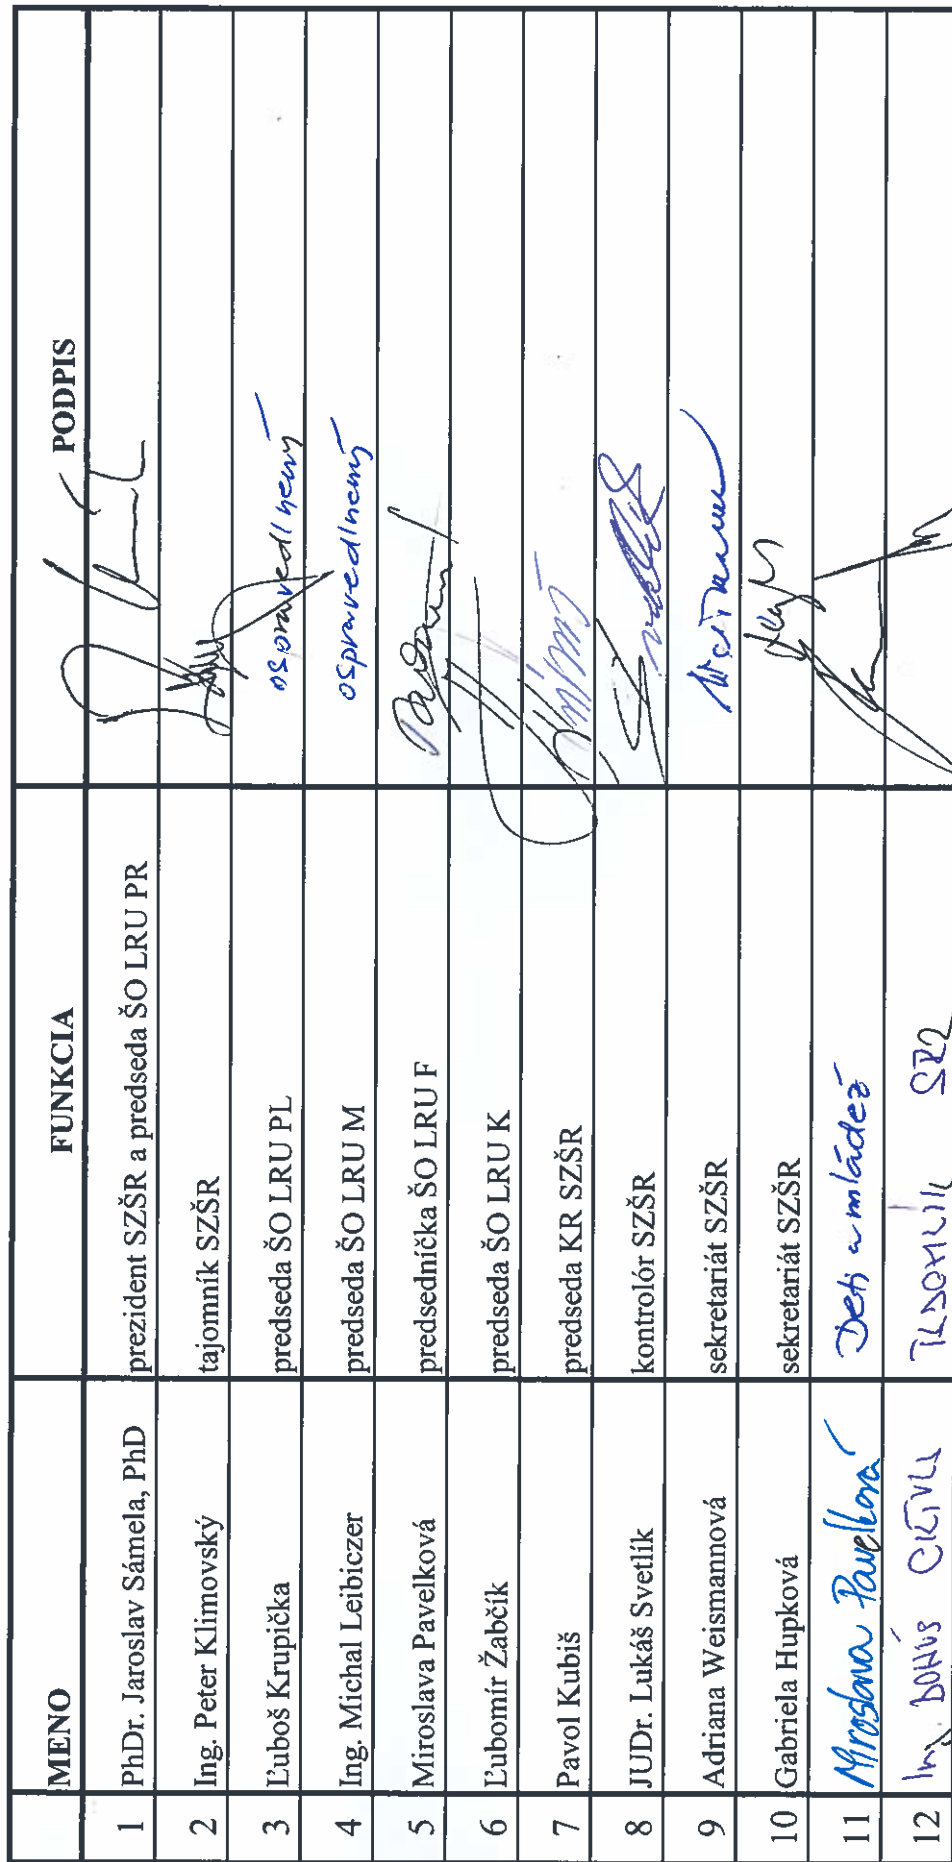 MENO FUNKCIA PODPIS
1 PhDr. Jaroslav Sámela, PhD prezident SZŠR a predseda ŠO LRU PR
2 Ing. Peter Klimovský tajomník SZŠR
3 Ľuboš Krupička predseda ŠO LRU PL ospravedlnený
4 Ing. Michal Leibiczer predseda ŠO LRU M ospravedlnený
5 Miroslava Pavelková predsedníčka ŠO LRU F
6 Ľubomír Žabčík predseda ŠO LRU K
7 Pavol Kubiš predseda KR SZŠR
8 JUDr. Lukáš Svetlík kontrolór SZŠR
9 Adriana Weismannová sekretariát SZŠR
10 Gabriela Hupková sekretariát SZŠR
11 Miroslava Pavelková Deti a mládež
12 Ing.